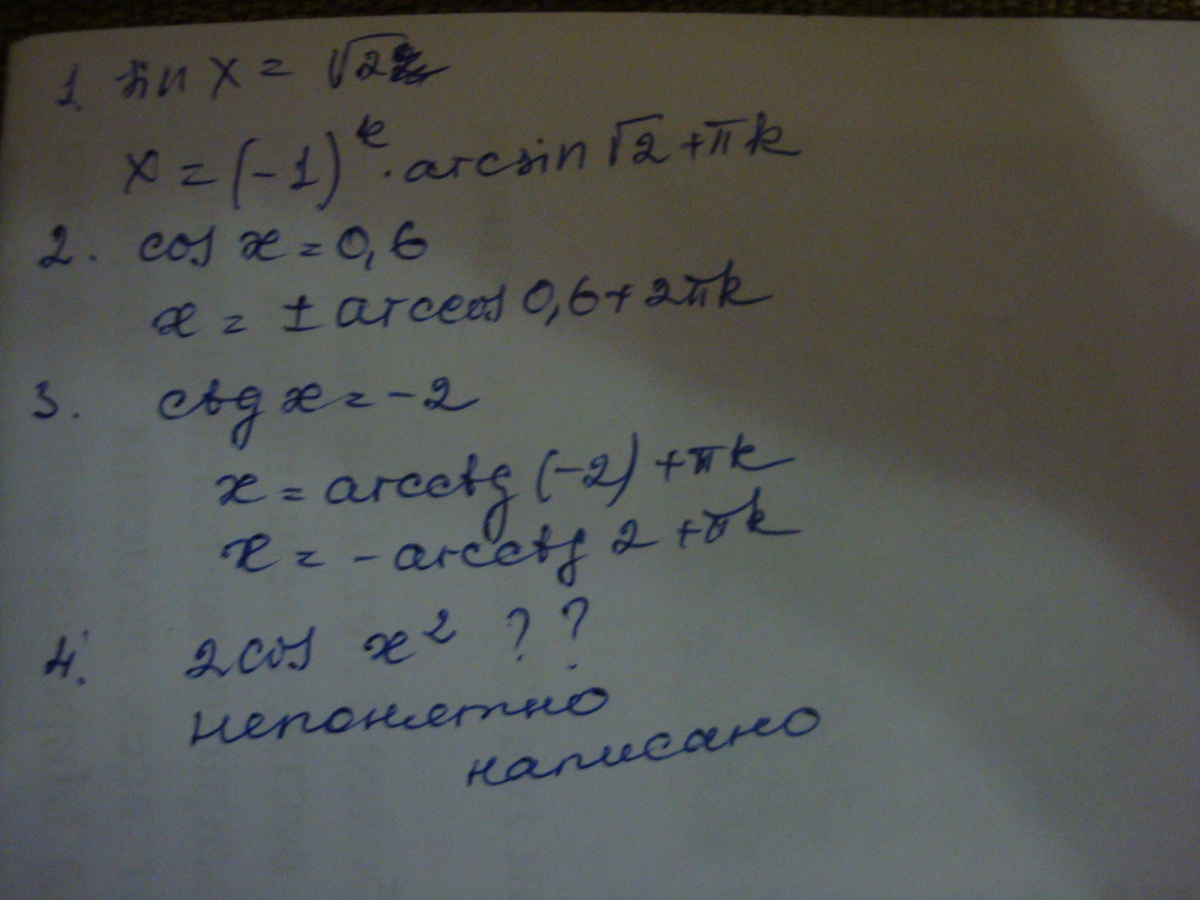 1. sin x = √2
x = (-1)^k · arcsin √2 + πk
2. cos x = 0,6
x = ± arccos 0,6 + 2πk
3. ctg x = -2
x = arcctg (-2) + πk
x = - arcctg 2 + πk
4. 2cos x² ??
непонятно
написано